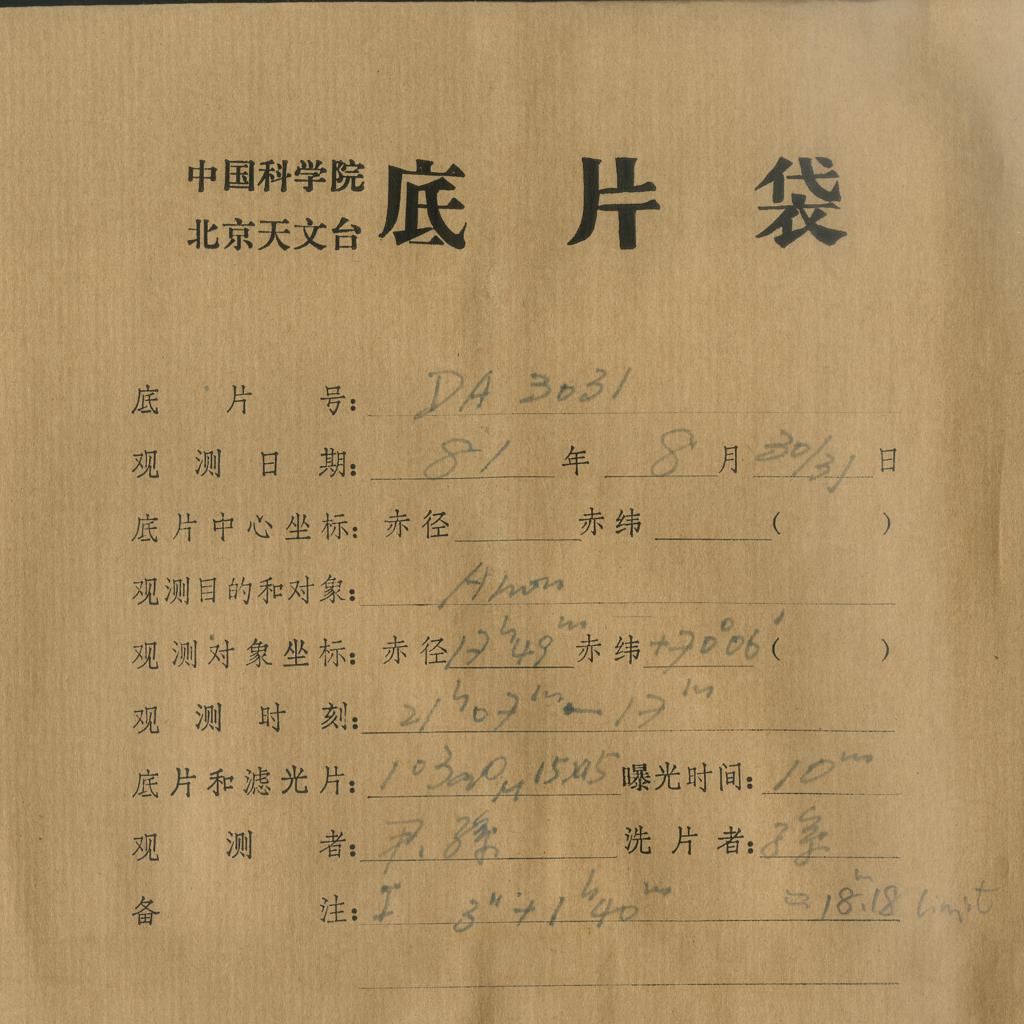 中国科学院
北京天文台
底片袋
底片号: DA 3031
观测日期: 81 年 8 月 30/31 日
底片中心坐标: 赤径 赤纬 ( )
观测目的和对象: Anon
观测对象坐标: 赤径 17ʰ49ᵐ 赤纬 +70°06′ ( )
观测时刻: 21ʰ07ᵐ — 17ᵐ
底片和滤光片: 103aO 15x15 曝光时间: 10ᵐ
观测者: 尹、孫 洗片者: 孫
备注: I 3" + 1ʰ40ᵐ 18ᵐ.18 limit